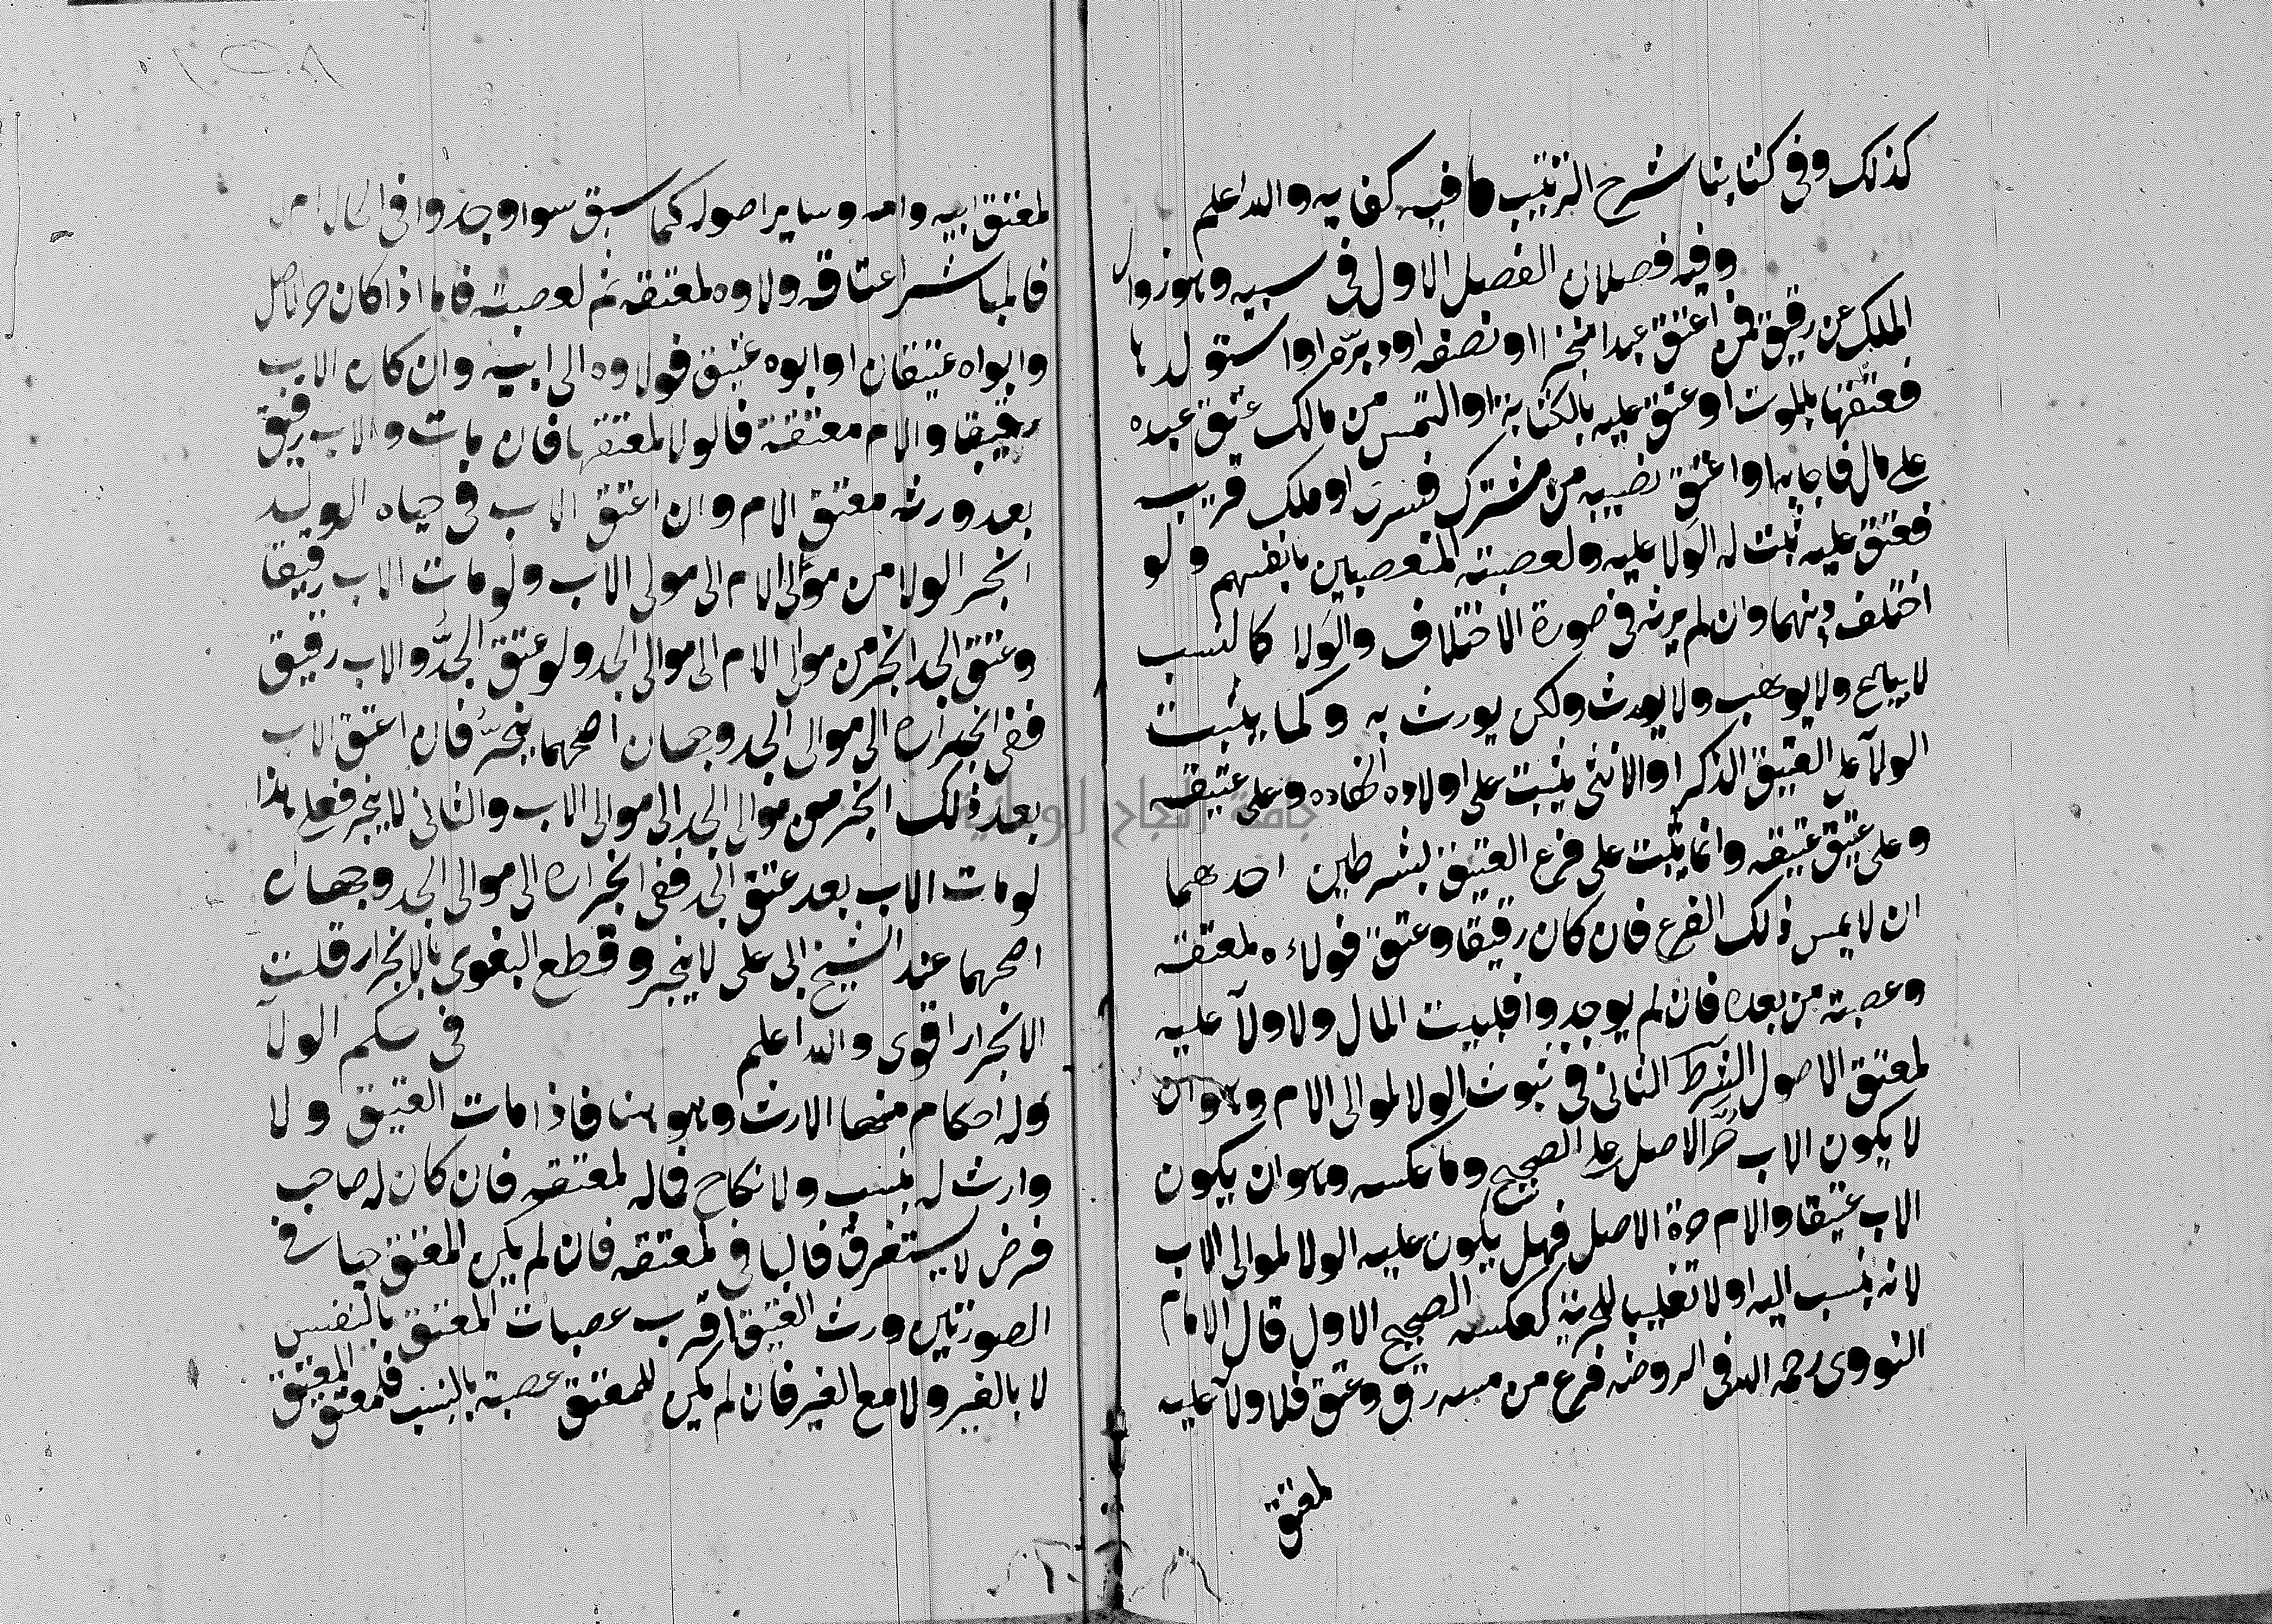 كذلك وفي كتابنا شرح الترتيب ما فيه كفايه والله اعلم
وفيه فصلان الفصل الاول في سببه وهو زوال
الملك عن رقيق فمن اعتق عبدا منجزا او نصفه او دبره او استولدها
فعتقها بالموت او عتق عليه بالكتابة او التمس من مالك عتق عبده
على مال فاجابه او اعتق نصيبه من مشترك فسرى او ملك قريب
فعتق عليه ثبت له الولا عليه ولعصبته المتعصبين بانفسهم ولو
اختلف دينهما وان لم يرثه في صورة الاختلاف والولا كالنسب
لا يباع ولا يوهب ولا يورث ولكن يورث به وكما يثبت
الولآ على العتيق الذكر او الانثى يثبت على اولاده احفاده وعلى عتيقه
وعلى عتيق عتيقه وانما يثبت على فرع العتيق بشرطين احدهما
ان لا يمس ذلك الفرع فان كان رقيقا وعتق فولاءه لمعتقه
وعصبته من بعده فان لم يوجدوا فلبيت المال ولا ولآ عليه
لمعتق الاصول الشرط الثاني في ثبوت الولا لموالى الام وهو ان
لا يكون الاب حر الاصل على الصحيح وما عكسه وهو ان يكون
الاب عتيقا والام حرة الاصل فهل يكون عليه الولا لموالى الاب
لانه ينسب اليه او لا تغليبا للحرية كعكسه الصحيح الاول قال الامام
النووى رحمه الله في الروضه فرع من مسه رق وعتق فلا ولآ عليه
لمعتق
لمعتق ابيه وامه وساير اصوله كما سبق سوا وجدوا في الحال ام
فالمباشر اعتاقه ولاوه لمعتقه ثم لعصبته فاما اذا كان حر الاصل
وابواه عتيقان او ابوه عتيق فولاوه الى ابيه وان كان الاب
رقيقا والام معتقة فالولا لمعتقها فان مات والاب رقيق
بعد ورثه معتق الام وان اعتق الاب في حياه الوليد
انجر الولا من موالى الام الى موالى الاب ولو مات الاب رقيقا
وعتق الجد انجر من موالى الام الى موالى الجد ولو عتق الجد والاب رقيق
ففي انجراره الى موالى الجد وجهان اصحهما ينجر فان اعتق الاب
بعد ذلك انجر من موالى الجد الى موالى الاب والثاني لا ينجر فعلى هذا
لو مات الاب بعد عتق الجد ففي انجراره الى موالى الجد وجهان
اصحهما عند الشيخ ابى على لا ينجر وقطع البغوى بالانجرار قلت
الانجرار اقوى والله اعلم في حكم الولآ
وله احكام منها الارث وهو هنا فاذا مات العتيق ولا
وارث له بنسب ولا نكاح فماله لمعتقه فان كان له صاحب
فرض لا يستغرق فالباقى لمعتقه فان لم يكن المعتق حيا في
الصورتين ورث العتيق اقرب عصبات المعتق بالنفس
لا بالغير ولا مع الغير فان لم يكن للمعتق عصبة بالنسب فلمعتق المعتق